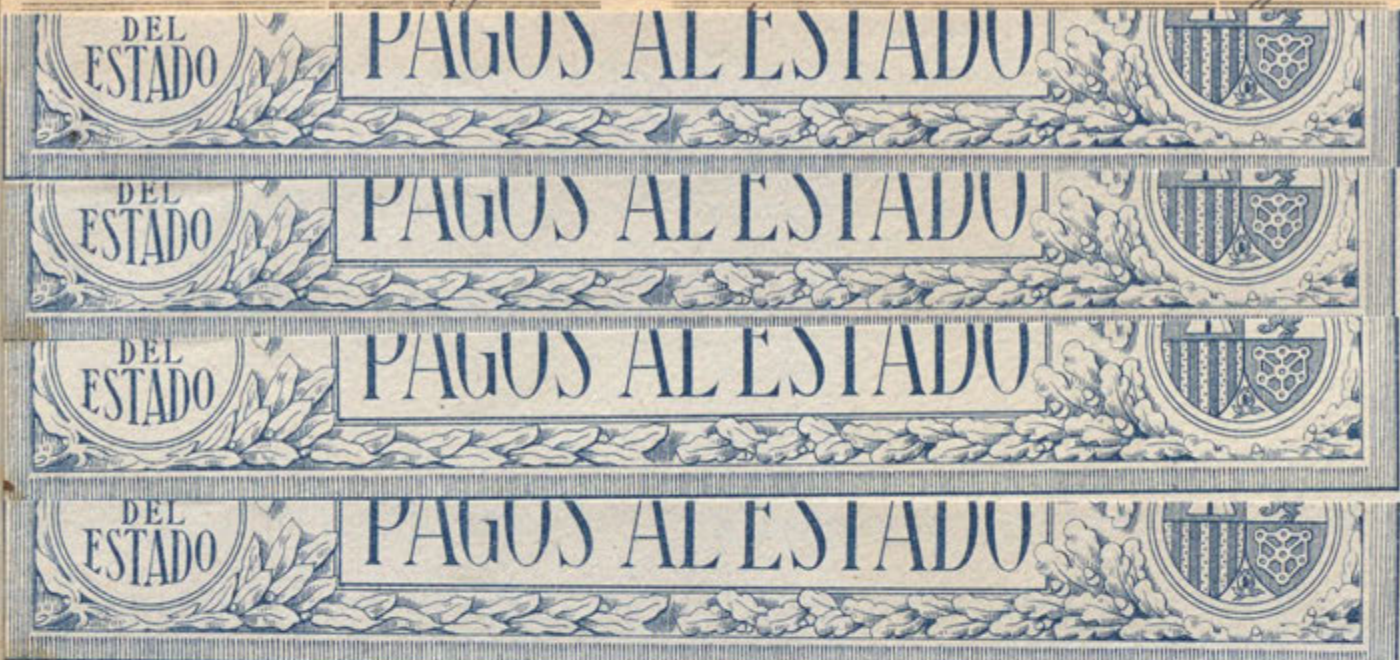 DEL
ESTADO
PAGOS AL ESTADO
DEL
ESTADO
PAGOS AL ESTADO
DEL
ESTADO
PAGOS AL ESTADO
DEL
ESTADO
PAGOS AL ESTADO